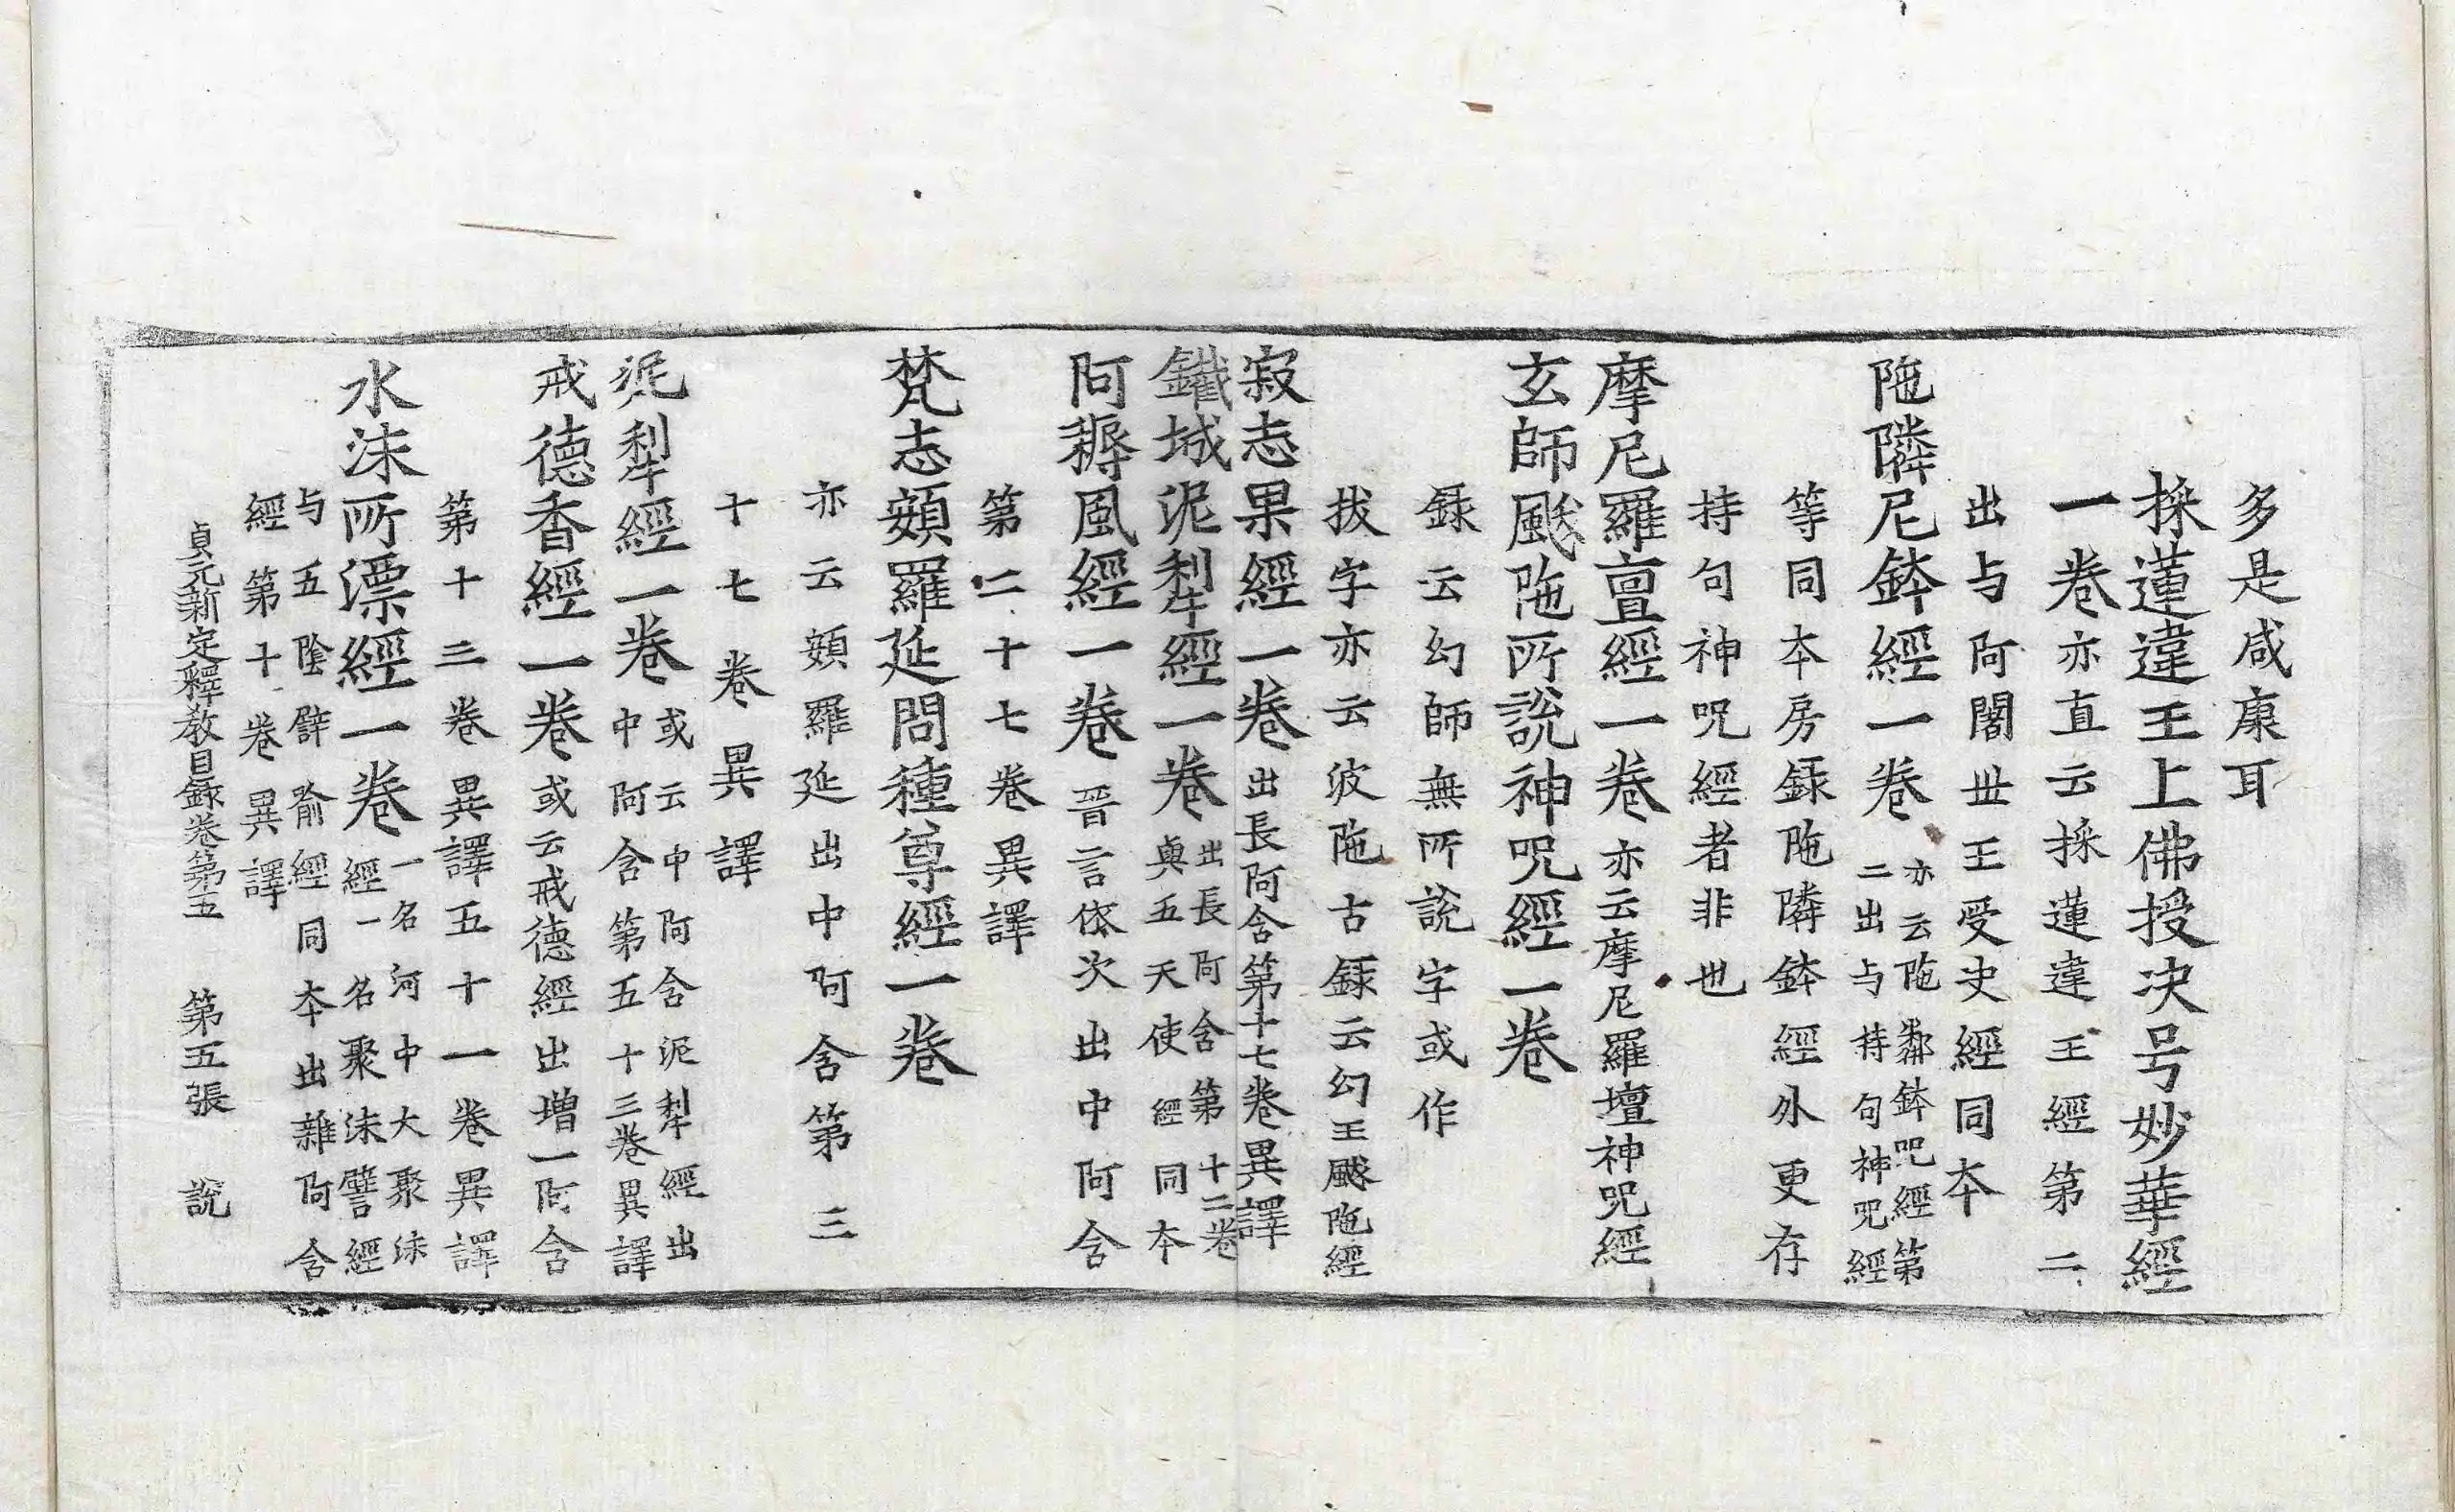 多是咸康耳
採蓮違王上佛授决号妙華經
一卷亦直云採蓮違王經第二
出与阿闍世王受决經同本
陁隣尼鉢經一卷亦云陁鄰鉢呪經第二出与持句神呪經
等同本房録陁隣鉢經外更存
持句神呪經者非也
摩尼羅亶經一卷亦云摩尼羅壇神呪經
玄師颰陁所說神呪經一卷
録云幻師無所說字或作
拔字亦云波陁古録云幻王颰陁經
寂志果經一卷出長阿含第十七卷異譯
鐵城泥犁經一卷出長阿含第十二卷與五天使經同本
阿耨風經一卷晉言依次出中阿含
第二十七卷異譯
梵志頞羅延問種尊經一卷
亦云頞羅延出中阿含第三
十七卷異譯
泥犁經一卷或云中阿含泥犁經出中阿含第五十三卷異譯
戒德香經一卷或云戒德經出增一阿含
第十三卷異譯五十一卷異譯
水沫所漂經一卷一名河中大聚沫經一名聚沫譬經
与五陰譬喻經同本出雜阿含
經第十卷異譯
貞元新定釋教目録卷第五 第五張 說